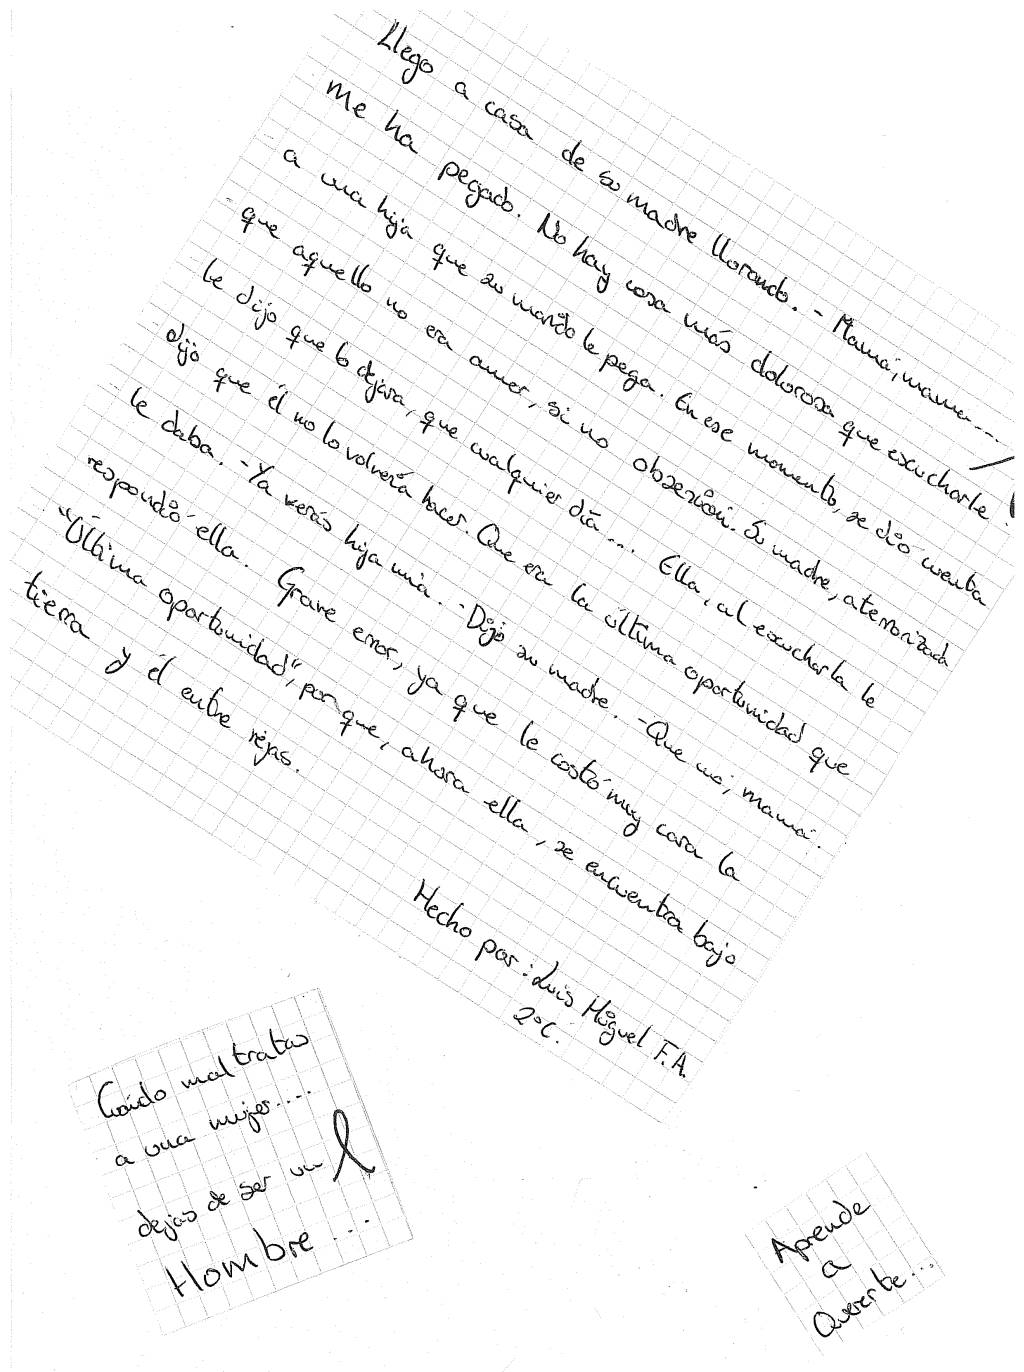 Llego a casa de su madre llorando. - Mamá, mama...
me ha pegado. No hay cosa más dolorosa que escucharle
a una hija que su marido le pega. En ese momento, se dió cuenta
que aquello no era amor, si no obsesión. Su madre, aterrorizada
le dijo que lo dejara, que cualquier día... Ella, al escucharla le
dijo que él no lo volvería hacer. Que era la última oportunidad que
le daba. - Ya verás hija mía. - Dijo su madre. - Que no, mamá.
respondió ella. Grave error, ya que le costó muy cara la
"Última oportunidad", por que, ahora ella, se encuentra bajo
tierra y él entre rejas.
Hecho por: Luis Miguel F.A.
2ºC.
Cuando maltratas
a una mujer....
dejas de ser un
Hombre...
Aprende
a
Quererte...